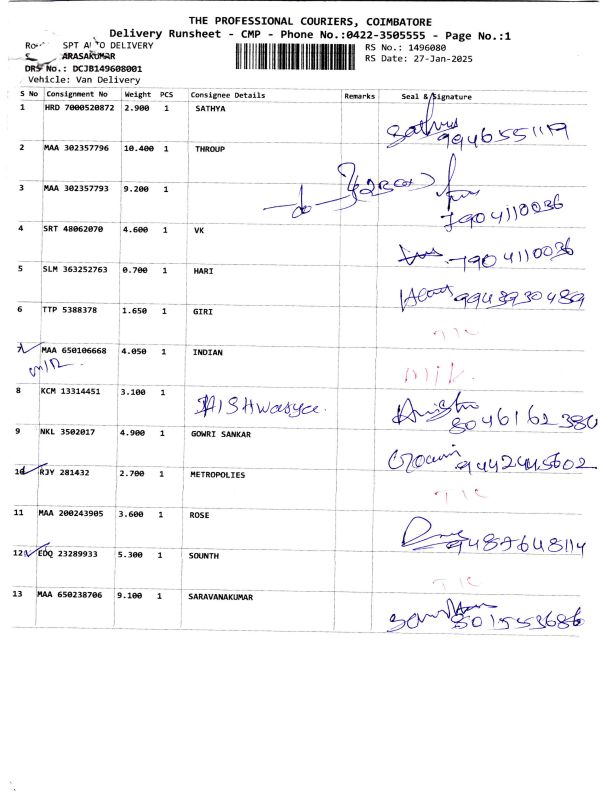 THE PROFESSIONAL COURIERS, COIMBATORE
Delivery Runsheet - CMP - Phone No.:0422-3505555 - Page No.:1
SPT AUTO DELIVERY RS No.: 1496080
ARASAKUMAR RS Date: 27-Jan-2025
DRS No.: DCJB149608001
Vehicle: Van Delivery
S No Consignment No Weight PCS Consignee Details Remarks Seal & Signature
1 HRD 7000520872 2.900 1 SATHYA
9946551119
2 MAA 302357796 10.400 1 THROUP
3 MAA 302357793 9.200 1
7904110036
4 SRT 48062070 4.600 1 VK
7904110036
5 SLM 363252763 0.700 1 HARI
9943930489
6 TTP 5388378 1.650 1 GIRI
7 MAA 650106668 4.050 1 INDIAN
8 KCM 13314451 3.100 1 AISHwarya.
8046162380
9 NKL 3502017 4.900 1 GOWRI SANKAR
9442445602
10 RJY 281432 2.700 1 METROPOLIES
11 MAA 200243905 3.600 1 ROSE
9487648114
12 EDQ 23289933 5.300 1 SOUNTH
13 MAA 650238706 9.100 1 SARAVANAKUMAR